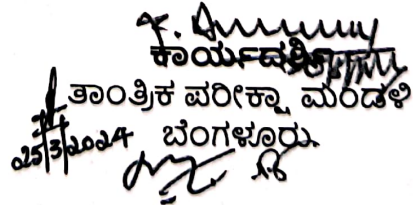 ಕಾರ್ಯದರ್ಶಿ
ತಾಂತ್ರಿಕ ಪರೀಕ್ಷಾ ಮಂಡಳಿ
ಬೆಂಗಳೂರು.
25/3/2024